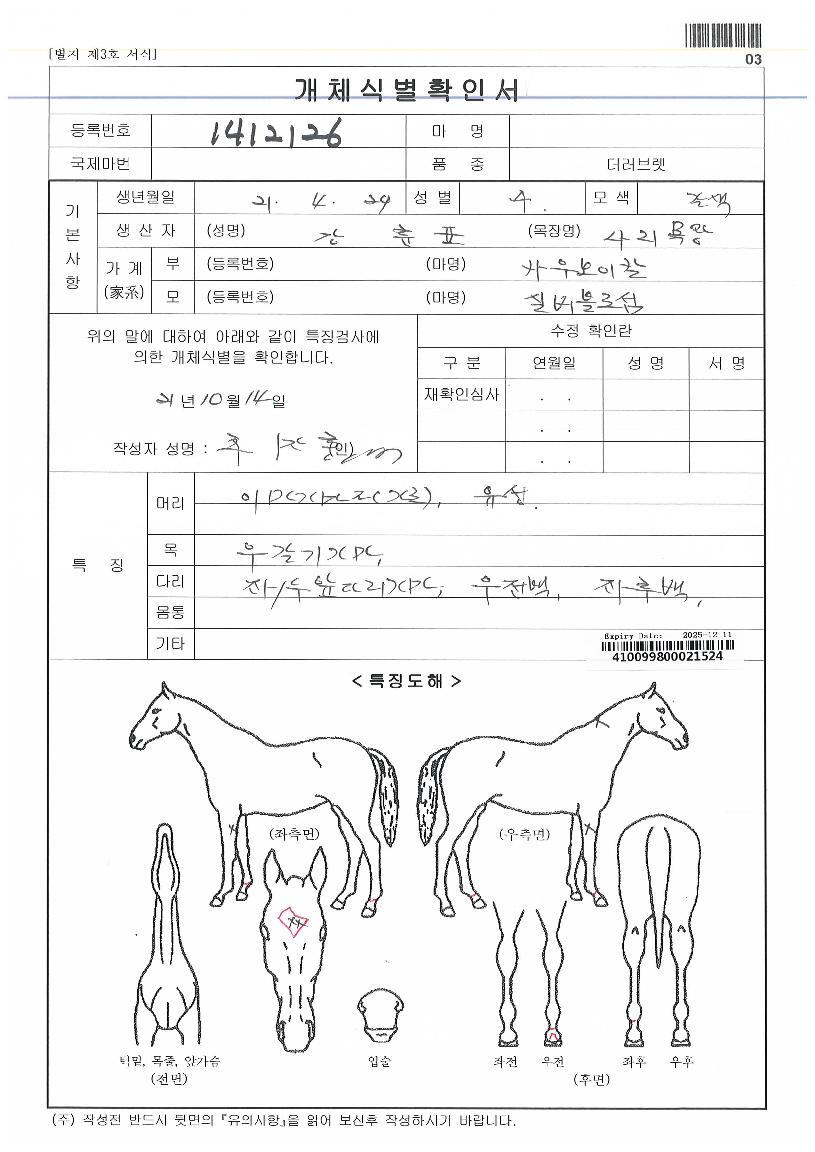 [별지 제3호 서식]
03
개체식별확인서
등록번호 1412126 마 명
국제마번 품 종 더러브렛
기본사항
생년월일 21. 4. 29 성 별 수. 모 색 갈색
생 산 자 (성명) 강 훈 표 (목장명)
가 계 (家系) 부 (등록번호) (마명)
모 (등록번호) (마명) 실버블로섬
위의 말에 대하여 아래와 같이 특징검사에
의한 개체식별을 확인합니다.
21 년 10 월 14 일
작성자 성명 : (인)
수정 확인란
구 분 연월일 성 명 서 명
재확인심사 . .
. .
. .
특 징
머리 유성.
목
다리 우전백, 좌후백,
몸통
기타
Expiry Date: 2025-12-11
410099800021524
< 특징도해 >
(좌측면) (우측면)
턱밑, 목줄, 앞가슴 입술 좌전 우전 좌후 우후
(전면) (후면)
(주) 작성전 반드시 뒷면의 『유의사항』을 읽어 보신후 작성하시기 바랍니다.